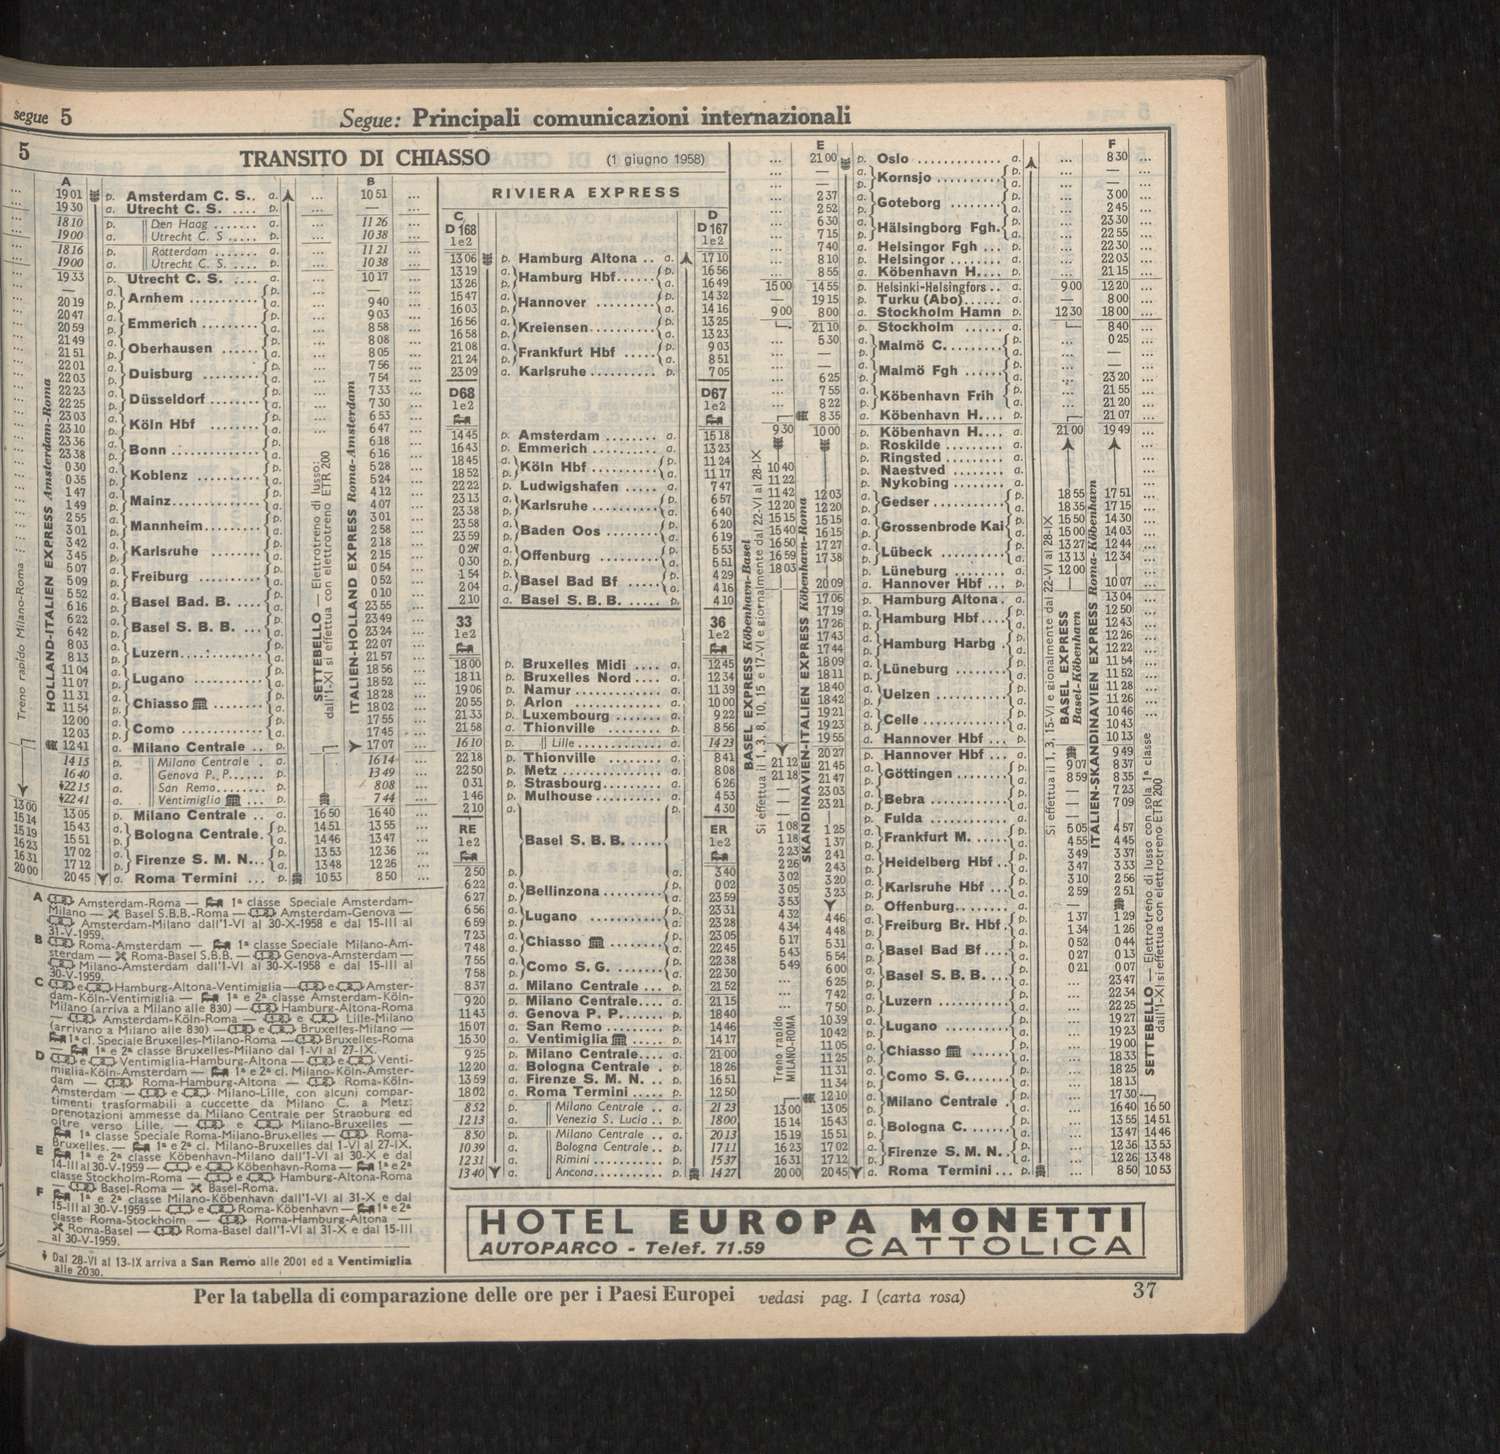 segue 5
Segue: Principali comunicazioni internazionali
5
TRANSITO DI CHIASSO (1 giugno 1958)
A B
19 01 p. Amsterdam C. S.. a. 10 51
19 30 a. Utrecht C. S. .... p. —
18 10 p. Den Haag ....... a. 11 26
19 00 a. Utrecht C. S ..... p. 10 38
18 16 p. Rotterdam ....... a. 11 21
19 00 a. Utrecht C. S. .... p. 10 38
19 33 p. Utrecht C. S. .... a. 10 17
— a. Arnhem ......... p. —
20 19 p. a. 9 40
20 47 a. Emmerich ......... p. 9 03
20 59 p. a. 8 58
21 49 a. Oberhausen ...... p. 8 08
21 51 p. a. 8 05
22 01 a. Duisburg ........ p. 7 56
22 03 p. a. 7 54
22 23 a. Düsseldorf ....... p. 7 33
22 25 p. a. 7 30
23 03 a. Köln Hbf ........ p. 6 53
23 10 p. a. 6 47
23 36 a. Bonn ............ p. 6 18
23 38 p. a. 6 16
0 30 a. Koblenz ......... p. 5 28
0 35 p. a. 5 24
1 47 a. Mainz........... p. 4 12
1 49 p. a. 4 07
2 55 a. Mannheim....... p. 3 01
3 01 p. a. 2 58
3 42 a. Karlsruhe ....... p. 2 18
3 45 p. a. 2 15
5 07 a. Freiburg ......... p. 0 54
5 09 p. a. 0 52
5 52 a. Basel Bad. B. .... p. 0 10
6 16 p. a. 23 55
6 22 a. Basel S. B. B. ... p. 23 49
6 42 p. a. 23 24
8 03 a. Luzern............ p. 22 07
8 13 p. a. 21 57
11 04 a. Lugano .......... p. 18 56
11 07 p. a. 18 52
11 31 a. Chiasso ........ p. 18 28
11 54 p. a. 18 02
12 00 a. Como ........... p. 17 55
12 03 p. a. 17 45
12 41 a. Milano Centrale .. p. 17 07
14 15 p. Milano Centrale . a. 16 14
16 40 a. Genova P. P...... p. 13 49
22 15 a. San Remo....... p. 8 08
22 41 a. Ventimiglia ... p. 7 44
13 00 13 05 p. Milano Centrale .. a. 16 50 16 40
15 14 15 43 a. Bologna Centrale. p. 14 51 13 55
15 19 15 51 p. a. 14 46 13 47
16 23 17 02 a. Firenze S. M. N... p. 13 53 12 36
16 31 17 12 p. a. 13 48 12 26
20 00 20 45 a. Roma Termini ... p. 10 53 8 50
Treno rapido Milano-Roma
HOLLAND-ITALIEN EXPRESS Amsterdam-Roma
SETTEBELLO — Elettrotreno di lusso; dall'1-XI si effettua con elettrotreno ETR 200
ITALIEN-HOLLAND EXPRESS Roma-Amsterdam
A Amsterdam-Roma — 1ª classe Speciale Amsterdam-
Milano — Basel S.B.B.-Roma — Amsterdam-Genova —
Amsterdam-Milano dall'1-VI al 30-X-1958 e dal 15-III al
31-V-1959.
B Roma-Amsterdam — 1ª classe Speciale Milano-Am-
sterdam — Roma-Basel S.B.B. — Genova-Amsterdam —
Milano-Amsterdam dall'1-VI al 30-X-1958 e dal 15-III al
30-V-1959.
C e Hamburg-Altona-Ventimiglia— e Amster-
dam-Köln-Ventimiglia — 1ª e 2ª classe Amsterdam-Köln-
Milano (arriva a Milano alle 830) — Hamburg-Altona-Roma
— Amsterdam-Köln-Roma — e Lille-Milano
(arrivano a Milano alle 830) — e Bruxelles-Milano —
1ª cl. Speciale Bruxelles-Milano-Roma — Bruxelles-Roma
— 1ª e 2ª classe Bruxelles-Milano dal 1-VI al 27-IX.
D e Ventimiglia-Hamburg-Altona — e Venti-
miglia-Köln-Amsterdam — 1ª e 2ª cl. Milano-Köln-Amster-
dam — Roma-Hamburg-Altona — Roma-Köln-
Amsterdam — e Milano-Lille, con alcuni compar-
timenti trasformabili a cuccette da Milano C. a Metz:
prenotazioni ammesse da Milano Centrale per Straoburg ed
oltre verso Lille. — e Milano-Bruxelles —
1ª classe Speciale Roma-Milano-Bruxelles — Roma-
Bruxelles. — 1ª e 2ª cl. Milano-Bruxelles dal 1-VI al 27-IX.
E 1ª e 2ª classe Köbenhavn-Milano dall'1-VI al 30-X e dal
14-III al 30-V-1959 — e Köbenhavn-Roma — 1ª e 2ª
classe Stockholm-Roma — e Hamburg-Altona-Roma
— Basel-Roma — Basel-Roma.
F 1ª e 2ª classe Milano-Köbenhavn dall'1-VI al 31-X e dal
15-III al 30-V-1959 — e Roma-Köbenhavn — 1ª e 2ª
classe Roma-Stockholm — Roma-Hamburg-Altona —
Roma-Basel — Roma-Basel dall'1-VI al 31-X e dal 15-III
al 30-V-1959.
Dal 28-VI al 13-IX arriva a San Remo alle 2001 ed a Ventimiglia
alle 2030.
RIVIERA EXPRESS
C D
D 168 D 167
1e2 1e2
13 06 p. Hamburg Altona .. a. 17 10
13 19 a. Hamburg Hbf...... p. 16 56
13 26 p. a. 16 49
15 47 a. Hannover ......... p. 14 32
16 03 p. a. 14 16
16 56 a. Kreiensen......... p. 13 25
16 58 p. a. 13 23
21 08 a. Frankfurt Hbf ..... p. 9 03
21 24 p. a. 8 51
23 09 a. Karlsruhe.......... p. 7 05
D68 D67
1e2 1e2
14 45 p. Amsterdam ........ a. 15 18
16 43 p. Emmerich ......... a. 13 23
18 45 a. Köln Hbf ......... p. 11 24
18 52 p. a. 11 17
22 22 p. Ludwigshafen ..... a. 7 47
23 13 a. Karlsruhe......... p. 6 57
23 38 p. a. 6 40
23 58 a. Baden Oos ........ p. 6 20
23 59 p. a. 6 19
0 27 a. Offenburg ........ p. 5 53
0 30 p. a. 5 51
1 54 a. Basel Bad Bf ..... p. 4 29
2 04 p. a. 4 16
2 10 a. Basel S. B. B. ..... p. 4 10
33 36
1e2 1e2
18 00 p. Bruxelles Midi .... a. 12 45
18 11 p. Bruxelles Nord .... a. 12 34
19 06 p. Namur ............ a. 11 39
20 55 p. Arlon ............ a. 10 00
21 33 p. Luxembourg ....... a. 9 22
21 58 a. Thionville ........ p. 8 56
16 10 p. Lille ............. a. 14 23
22 18 p. Thionville ........ a. 8 41
22 50 p. Metz .............. a. 8 08
0 31 p. Strasbourg......... a. 6 26
1 46 p. Mulhouse .......... a. 4 53
2 10 a. p. 4 30
RE Basel S. B. B. ..... ER
1e2 1e2
2 50 p. a. 3 40
6 22 a. Bellinzona........ p. 0 02
6 27 p. a. 23 59
6 56 a. Lugano .......... p. 23 31
6 59 p. a. 23 28
7 23 a. Chiasso ........ p. 23 05
7 48 p. a. 22 45
7 55 a. Como S. G. ....... p. 22 38
7 58 p. a. 22 30
8 37 a. Milano Centrale ... p. 21 52
9 20 p. Milano Centrale.... a. 21 15
11 43 a. Genova P. P....... p. 18 40
15 07 a. San Remo ........ p. 14 46
15 30 a. Ventimiglia ..... p. 14 17
9 25 p. Milano Centrale.... a. 21 00
12 20 a. Bologna Centrale . p. 18 26
13 59 a. Firenze S. M. N. .. p. 16 51
18 02 a. Roma Termini ..... p. 12 50
8 52 p. Milano Centrale .. a. 21 23
12 13 a. Venezia S. Lucia .. p. 18 00
8 50 p. Milano Centrale .. a. 20 13
10 39 p. Bologna Centrale .. p. 17 11
12 31 a. Rimini ........... p. 15 37
13 40 a. Ancona........... p. 14 27
E F
21 00 p. Oslo ............ a. 8 30
— a. Kornsjo .......... p. —
— p. a. —
2 37 a. Goteborg ........ p. 3 00
2 52 p. a. 2 45
6 30 a. Hälsingborg Fgh. p. 23 30
7 15 p. a. 22 55
7 40 a. Helsingor Fgh ... p. 22 30
8 10 p. Helsingor ........ a. 22 03
8 55 a. Köbenhavn H.... p. 21 15
15 00 14 55 p. Helsinki-Helsingfors .. a. 9 00 12 20
— 19 15 p. Turku (Abo)...... a. — 8 00
9 00 8 00 a. Stockholm Hamn p. 12 30 18 00
21 10 p. Stockholm ...... a. 8 40
5 30 a. Malmö C......... p. 0 25
— p. a. —
— a. Malmö Fgh ...... p. —
6 25 p. a. 23 20
7 55 a. Köbenhavn Frih p. 21 55
8 22 p. a. 21 20
8 35 a. Köbenhavn H.... p. 21 07
9 30 10 00 p. Köbenhavn H.... a. 21 00 19 49
p. Roskilde ......... a.
10 40 p. Ringsted ........ a.
11 22 p. Naestved ........ a.
p. Nykobing ........ a.
11 42 12 03 a. Gedser .......... p. 18 55 17 51
12 20 12 20 p. a. 18 35 17 15
15 15 15 15 a. Grossenbrode Kai p. 15 50 14 30
15 40 16 15 p. a. 15 00 14 03
16 50 17 27 a. Lübeck .......... p. 13 27 12 44
16 59 17 38 p. a. 13 13 12 34
18 03 p. Lüneburg ........ a. 12 00
20 09 a. Hannover Hbf ... p. 10 07
17 06 p. Hamburg Altona . a. 13 04
17 19 a. Hamburg Hbf.... p. 12 50
17 26 p. a. 12 43
17 43 a. Hamburg Harbg . p. 12 26
17 44 p. a. 12 22
18 09 a. Lüneburg ........ p. 11 54
18 11 p. a. 11 52
18 40 a. Uelzen .......... p. 11 28
18 42 p. a. 11 26
19 21 a. Celle ............ p. 10 46
19 23 p. a. 10 43
19 55 a. Hannover Hbf ... p. 10 13
20 27 p. Hannover Hbf ... a. 9 49
21 12 21 45 a. Göttingen ........ p. 9 07 8 37
21 18 21 47 p. a. 8 59 8 35
23 03 a. Bebra ........... p. 7 23
23 21 p. a. 7 09
p. Fulda ........... a.
1 08 1 25 a. Frankfurt M. .... p. 5 05 4 57
1 18 1 37 p. a. 4 55 4 45
2 23 2 41 a. Heidelberg Hbf .. p. 3 49 3 37
2 26 2 43 p. a. 3 47 3 33
3 02 3 20 a. Karlsruhe Hbf ... p. 3 10 2 56
3 05 3 23 p. a. 2 59 2 51
3 53 p. Offenburg........ a. —
4 32 4 46 a. Freiburg Br. Hbf. p. 1 37 1 29
4 34 4 48 p. a. 1 34 1 26
5 17 5 31 a. Basel Bad Bf .... p. 0 52 0 44
5 43 5 54 p. a. 0 27 0 13
5 49 6 00 a. Basel S. B. B. ... p. 0 21 0 07
6 25 p. a. 23 47
7 42 a. Luzern .......... p. 22 34
7 50 p. a. 22 25
10 39 a. Lugano .......... p. 19 27
10 42 p. a. 19 23
11 05 a. Chiasso ...... p. 19 00
11 25 p. a. 18 33
11 31 a. Como S. G....... p. 18 25
11 34 p. a. 18 13
12 10 a. Milano Centrale . p. 17 30
13 00 13 05 p. a. 16 40 16 50
15 14 15 43 a. Bologna C. ...... p. 13 55 14 51
15 19 15 51 p. a. 13 47 14 46
16 23 17 02 a. Firenze S. M. N. . p. 12 36 13 53
16 31 17 12 p. a. 12 26 13 48
20 00 20 45 a. Roma Termini ... p. 8 50 10 53
BASEL EXPRESS Köbenhavn-Basel
Si effettua il 1, 3, 8, 10, 15 e 17-VI e giornalmente dal 22-VI al 28-IX
Treno rapido MILANO-ROMA
SKANDINAVIEN-ITALIEN EXPRESS Köbenhavn-Roma
Si effettua il 1, 3, 15-VI e gionalmente dal 22-VI al 28-IX
BASEL EXPRESS Basel-Köbenhavn
ITALIEN-SKANDINAVIEN EXPRESS Roma-Köbenhavn
SETTEBELLO — Elettrotreno di lusso con sola 1ª classe dall'1-XI si effettua con elettrotreno ETR 200
HOTEL EUROPA MONETTI
AUTOPARCO - Telef. 71.59 CATTOLICA
Per la tabella di comparazione delle ore per i Paesi Europei vedasi pag. I (carta rosa)
37